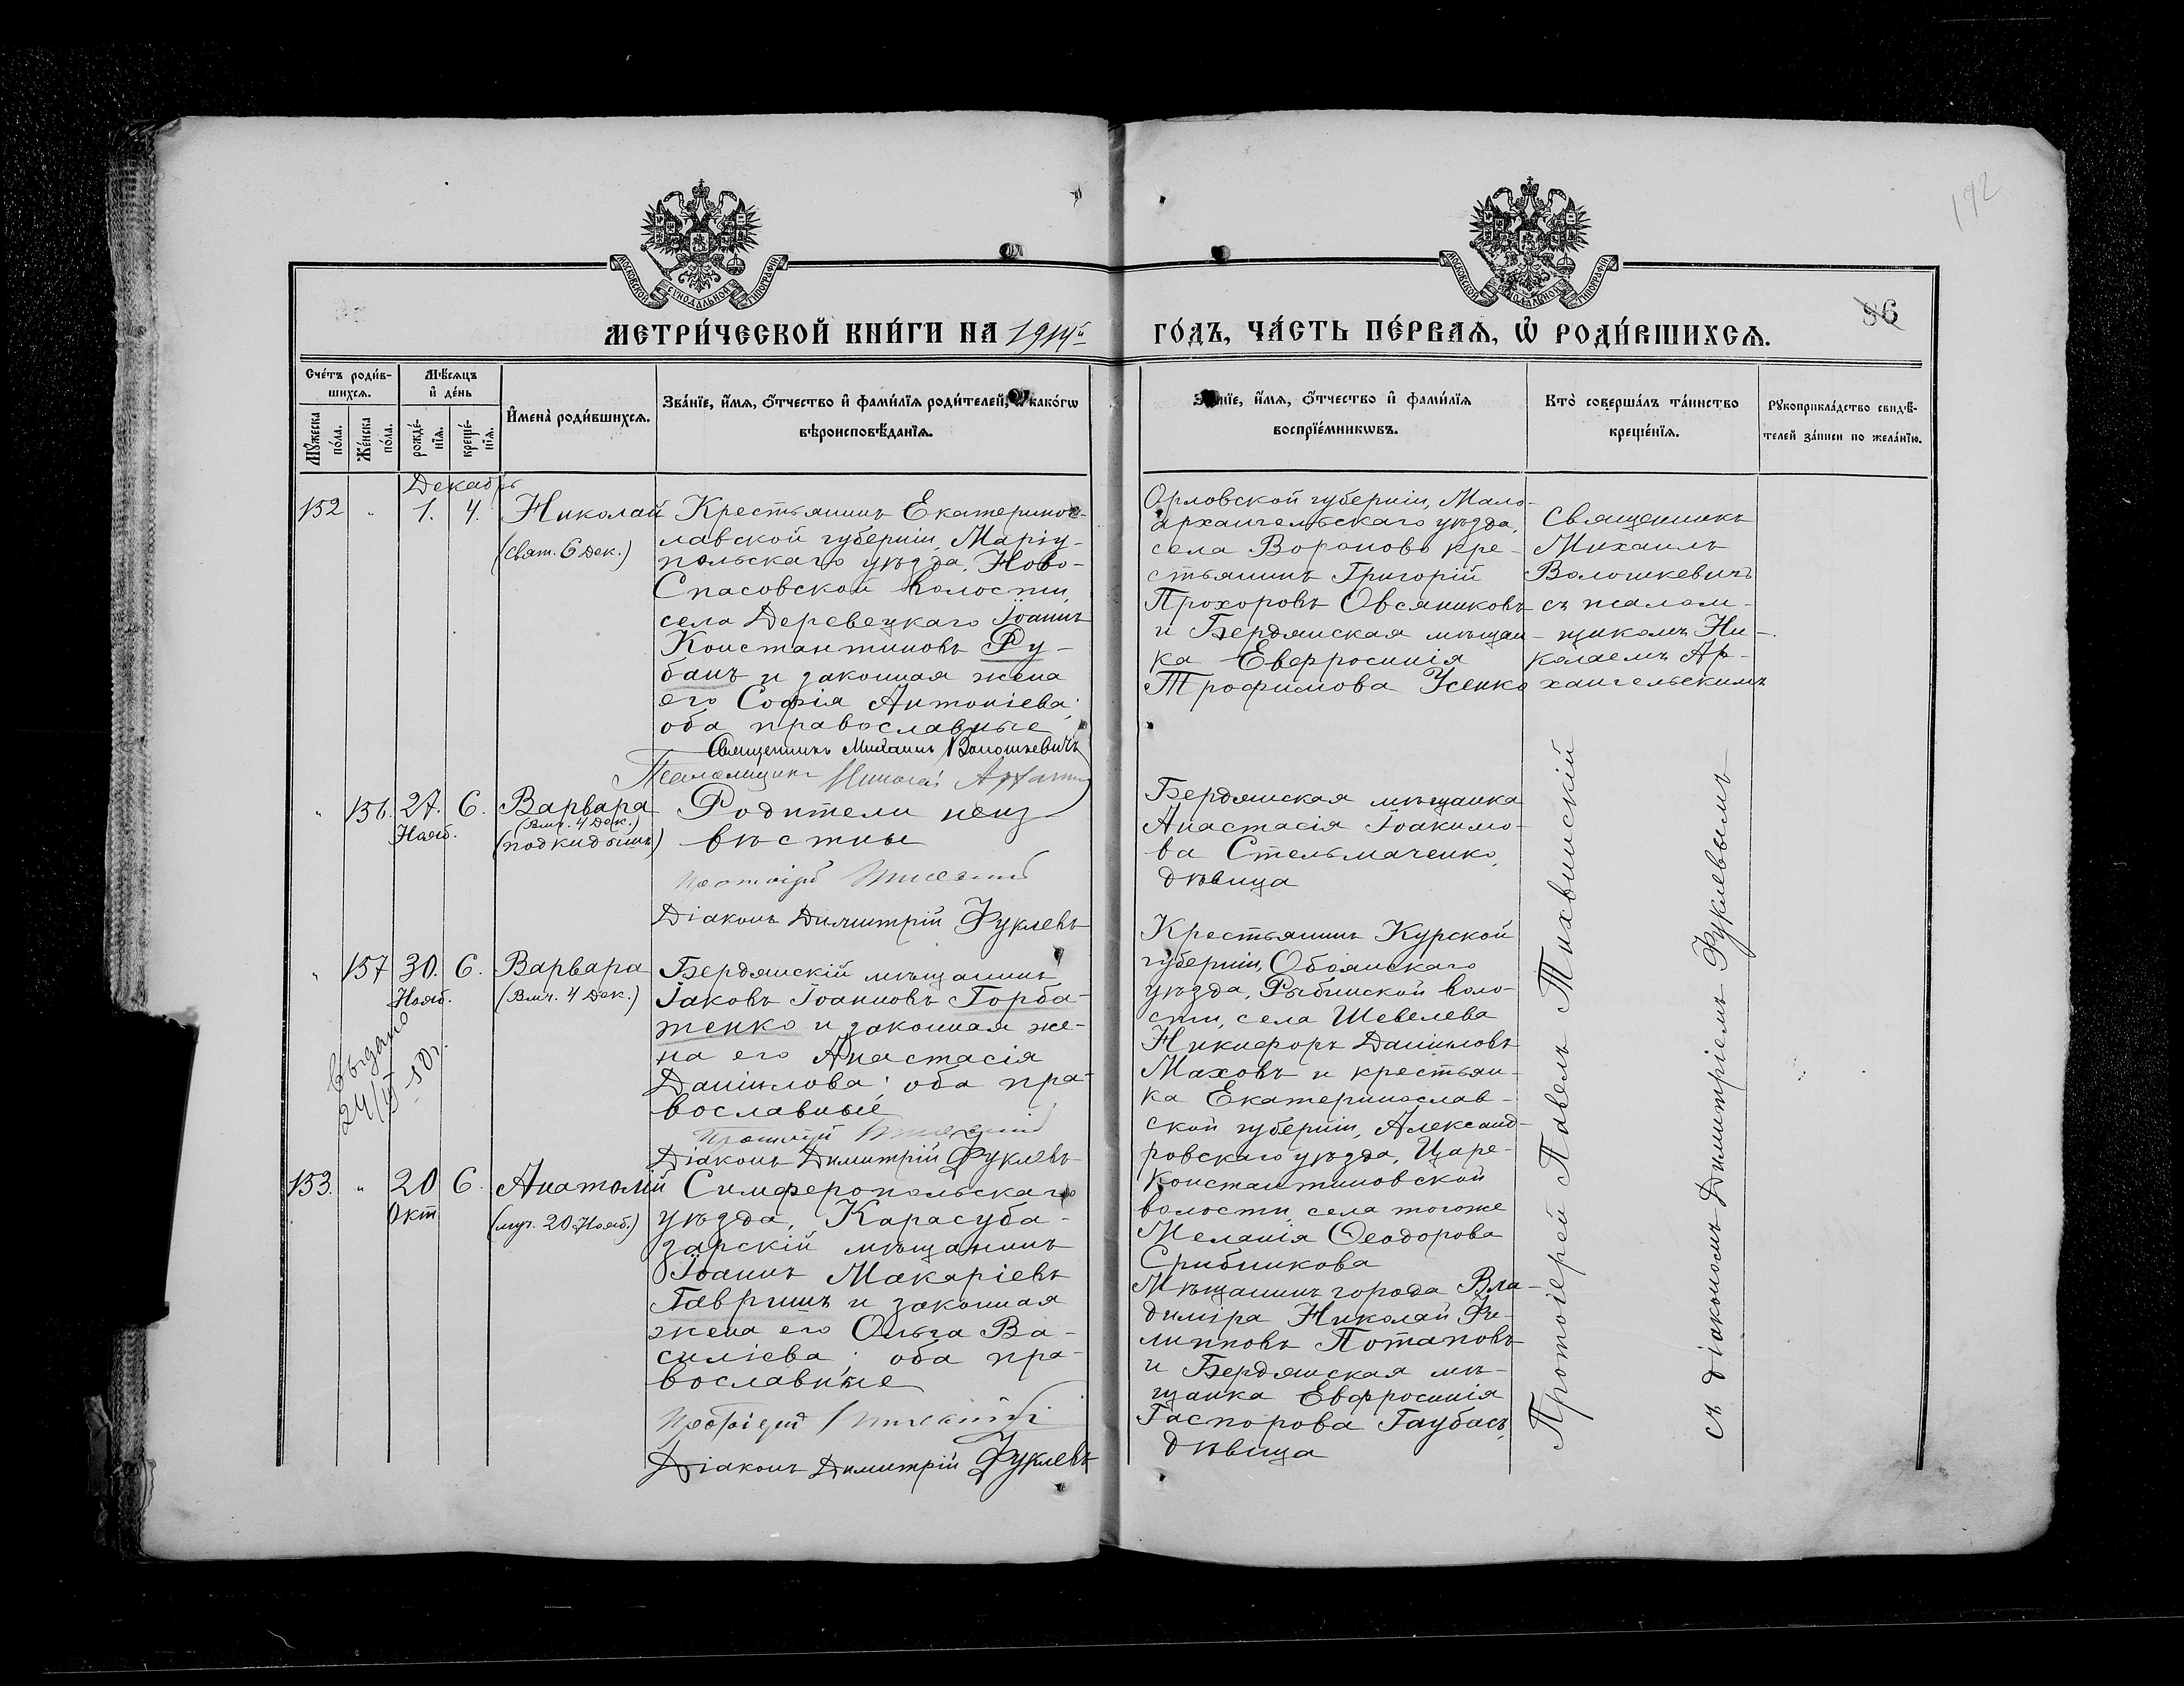 192
МОСКОВСКОЙ СѴНОДАЛЬНОЙ ТИПОГРАФІИ
МОСКОВСКОЙ СѴНОДАЛЬНОЙ ТИПОГРАФІИ
86
МЕТРИ́ЧЕСКОЙ КНИ́ГИ НА 1914й ГО́ДЪ, ЧА́СТЬ ПЕ́РВАѦ, Ѡ҆ РОДИ́ВШИХСѦ.
Сче́тъ роди́в-
шихсѧ.
Мꙋ́жеска по́ла.
Же́нска по́ла.
Мѣ́сѧцъ
и҆ де́нь
рожде́-
нїѧ.
креще́-
нїѧ.
И҆мена̀ роди́вшихсѧ.
Зва́нїе, и҆́мѧ, ѻ҆́тчество и҆ фами́лїѧ роди́телей, и҆ како́гѡ
вѣроисповѣ́данїѧ.
Зва́нїе, и҆́мѧ, ѻ҆́тчество и҆ фами́лїѧ
воспрїе́мникѡвъ.
Кто̀ соверша́лъ та́инство
креще́нїѧ.
Рꙋкоприкла́дство свидѣ́-
телей за́писи по жела́нїю.
Декабрь
152 " 1. 4. Николай
(Свят. 6 Дек.)
Крестьянинъ Екатеринос-
лавской губерніи, Маріу-
польскаго уѣзда, Ново-
Спасовской волости,
села Деревецкаго Іоаннъ
Константиновъ Ру-
банъ и законная жена
его Софія Антоніева;
оба православные
Священникъ Михаилъ Волошкевичъ
Псаломщикъ Николай
Орловской губерніи, Мало-
архангельскаго уѣзда,
села Вороново кре-
стьянинъ Григорій
Прохоровъ Овсяниковъ
и Бердянская мѣщан-
ка Евфросинія
Трофимова Усенко
Священникъ
Михаилъ
Волошкевичъ
съ псалом-
щикомъ Ни-
колаемъ Ар-
хангельскимъ
" 156. 27. 6. Варвара
Нояб.
(Влмч. 4 Дек.)
(подкидышъ)
Родители неиз-
вѣстны
Діаконъ Димитрій Фуклевъ
Бердянская мѣщанка
Анастасія Іоакимо-
ва Стельмаченко,
дѣвица
" 157 30. 6. Варвара
Нояб.
(Влмч. 4 Дек.)
Выдано
Бердянскій мѣщанинъ
Іаковъ Іоанновъ Горба-
тенко и законная же-
на его Анастасія
Даніилова; оба пра-
вославные
Діаконъ Димитрій Фуклевъ
Крестьянинъ Курской
губерніи, Обоянскаго
уѣзда, Рыбинской воло-
сти, села Шевелева
Никифоръ Даниловъ
Маховъ и крестьян-
ка Екатеринослав-
ской губерніи, Александ-
ровскаго уѣзда, Царе-
Константиновской
волости, села тогоже
Меланія Ѳеодорова
Срибникова
153. " 20 6. Анатолій
Окт.
(муч. 20 Нояб.)
Симферопольскаго
уѣзда, Карасуба-
зарскій мѣщанинъ
Іоаннъ Макаріевъ
Гавришъ и законная
жена его Ольга Ва-
силіева; оба пра-
вославные
Діаконъ Димитрій Фуклевъ
Мѣщанинъ города Вла-
диміра Николай Фи-
липповъ Потаповъ
и Бердянская мѣ-
щанка Евфросинія
Гаспорова Гаубасъ,
дѣвица
Протоіерей Павелъ Тихвинскій
съ діакономъ Димитріемъ Фуклевымъ